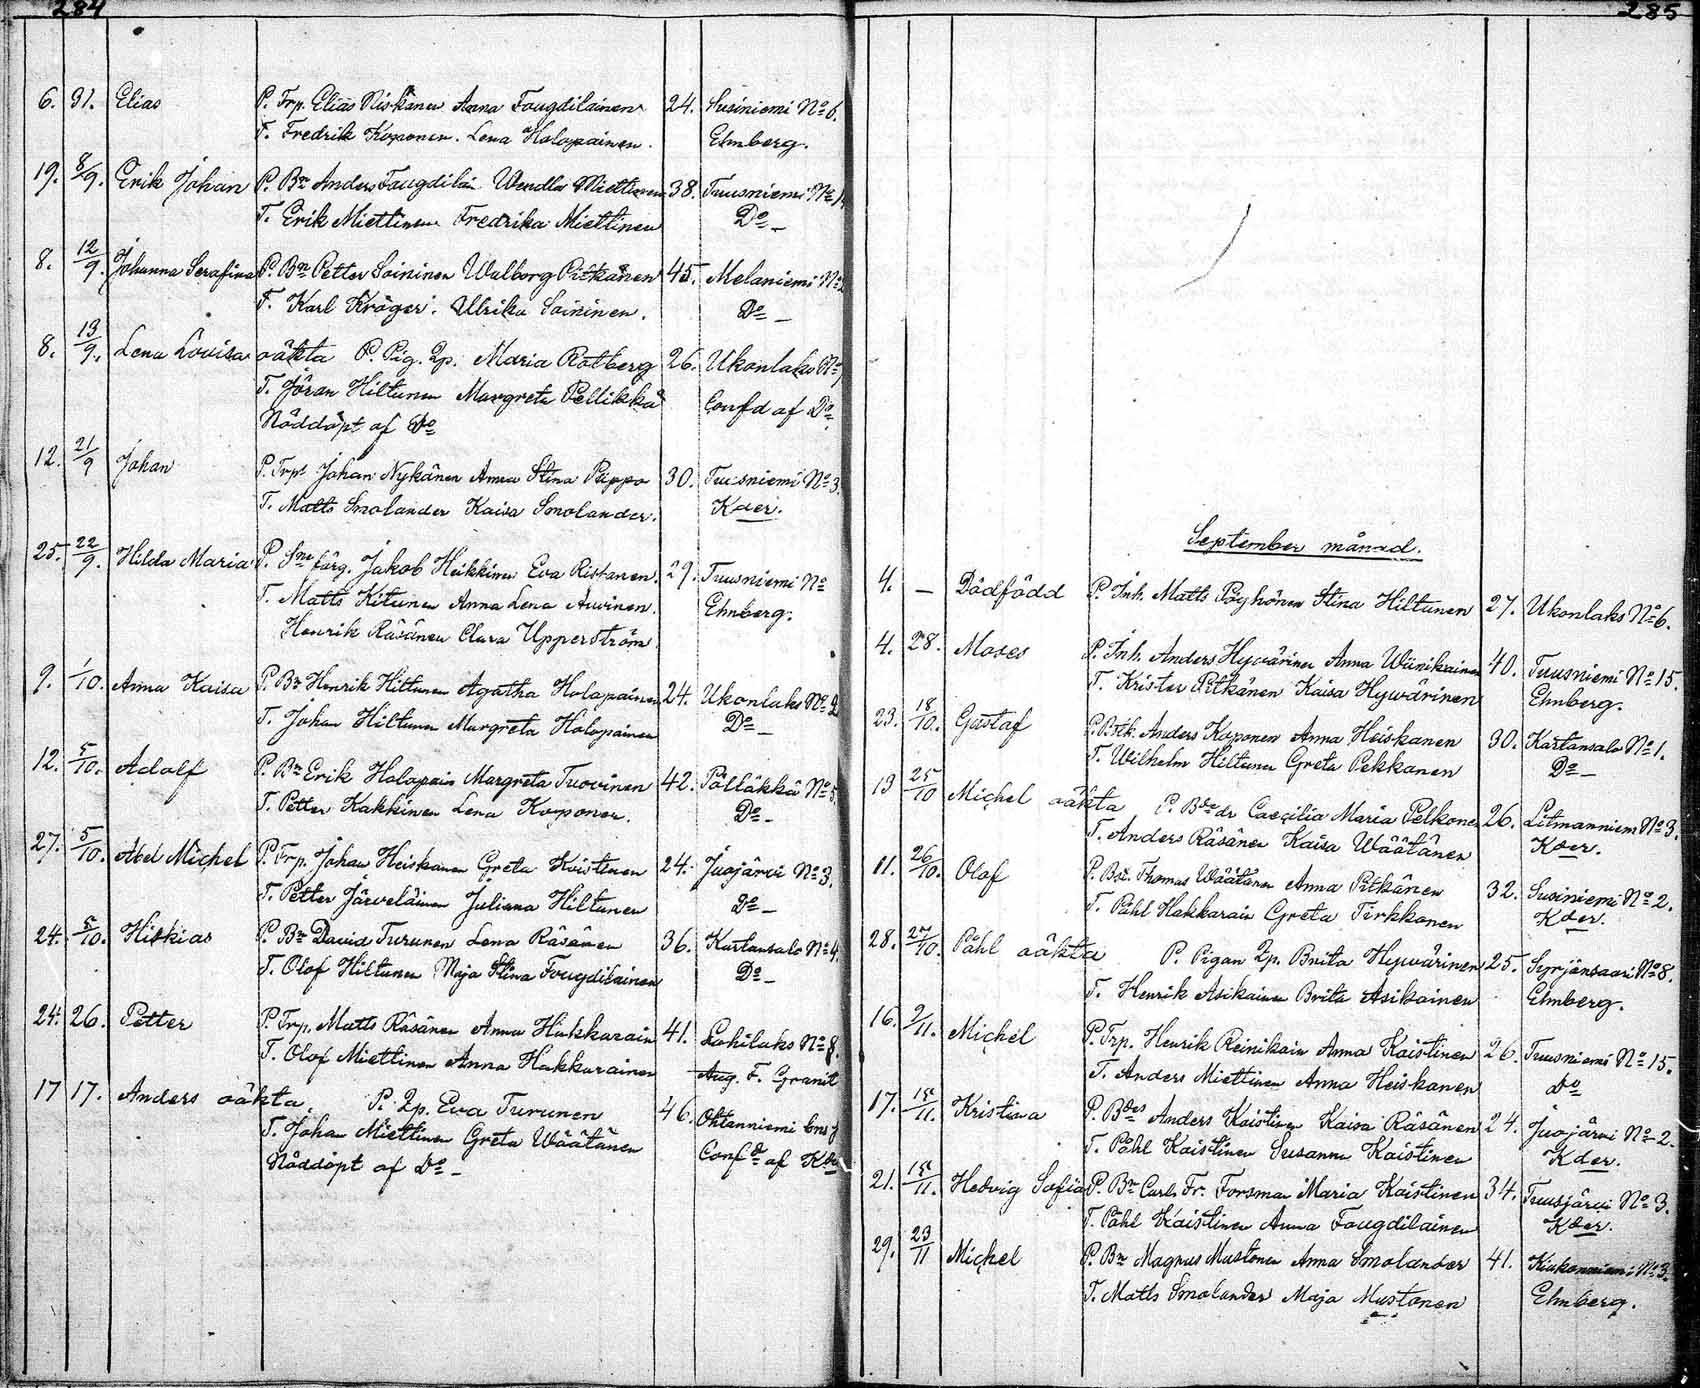 284
6. 31. Elias P. Trp. Elias Niskanen Anna Fougdilainen 24. Susiniemi No 6.
T. Fredrik Koponen. Lena Holopainen. Ehnberg.
19. 8/9. Erik Johan P. Bn Anders Fougdilain Wendla Miettinen 38. Tuusniemi No
T. Erik Miettinen Fredrika Miettinen Do
8. 12/9. Johanna Serafina P. Bn Petter Soininen Walborg Pitkänen 45. Melaniemi No
T. Karl Kröger. Ulrika Soininen. Do
8. 13/9. Lena Lovisa oäkta P. Pig. Qp. Maria Rotberg 26. Ukonlaks No
T. Jöran Hiltunen Margreta Pellikka Confd af Do
Nöddöpt af Do
12. 21/9 Johan P. Trp Johan Nykänen Anna Stina Pippo 30. Tuusniemi No 3.
T. Matts Smolander Kaisa Smolander. Kder.
25. 22/9. Hilda Maria P. Sme färg. Jakob Heikkinen Eva Ristanen. 29. Tuusniemi No
T. Matts Kitunen Anna Lena Auvinen. Ehnberg.
Henrik Räsänen Clara Upperström
9. 1/10. Anna Kaisa P. Bn Henrik Hiltunen Agatha Holopainen 24. Ukonlaks No 2
T. Johan Hiltunen Margreta Holopainen Do
12. 5/10. Adolf P. Bn Erik Holopain Margreta Tuovinen 42. Pölläkkä No 5.
T. Petter Kakkinen Lena Koponen. Do
27. 5/10. Abel Michel P. Trp. Johan Heiskanen Greta Koistinen 24. Juojärvi No 3.
T. Petter Järveläinen Juliana Hiltunen Do
24. 5/10. Hiskias P. Bn David Turunen Lena Räsänen 36. Kartansalo No 4.
T. Olof Hiltunen Maja Stina Fougdilainen Do
24. 26. Petter P. Trp. Matts Räsänen Anna Hakkarain 41. Lohilaks No 8.
T. Olof Miettinen Anna Hakkarainen Aug. F. Granit
17 17. Anders oäkta. P. Qp. Eva Turunen 46. Ohtanniemi
T. Johan Miettinen Greta Wäätänen Confd af Kder
Nöddöpt af Do
285
September månad.
4. — Dödfödd P. Inh. Matts Pöyhönen Stina Hiltunen 27. Ukonlaks No 6.
4. 28. Moses P. Inh. Anders Hyvärinen Anna Wänikainen 40. Tuusniemi No 15.
T. Krister Pitkänen Kaisa Hywärinen Ehnberg.
23. 18/10. Gustaf P. Bsk. Anders Koponen Anna Heiskanen 30. Kartansalo No 1.
T. Wilhelm Hiltunen Greta Pekkanen Do
13 25/10 Michel oäkta P. Bde dr Caecilia Maria Pelkonen 26. Litmanniem No 3.
T. Anders Räsänen Kaisa Wäätänen Kder.
11. 26/10. Olof P. Bsk. Thomas Wäätänen Anna Pitkänen 32. Susiniemi No 2.
T. Påhl Hakkarain Greta Tirkkonen Kder.
28. 27/10. Påhl oäkta P. Pigan Qp. Brita Hywärinen 25. Syrjänsaari No 8.
T. Henrik Asikainen Brita Asikainen Ehnberg.
16. 9/11. Michel P. Trp. Henrik Reinikain Anna Koistinen 26. Tuusniemi No 15.
T. Anders Miettinen Anna Heiskanen Do
17. 15/11. Kristina P. Bdes Anders Koistinen Kaisa Räsänen 24. Juojärvi No 2.
T. Påhl Koistinen Susanna Koistinen Kder.
21. 15/11. Hedvig Sofia P. Bn Carl Fr. Forsman Maria Koistinen 34. Tuusjärvi No 3.
T. Påhl Koistinen Anna Fougdilainen Kder.
29. 23/11 Michel P. Bn Magnus Mustonen Anna Smolander 41. Kiukonniemi No 3.
T. Matts Smolander Maja Mustonen Ehnberg.